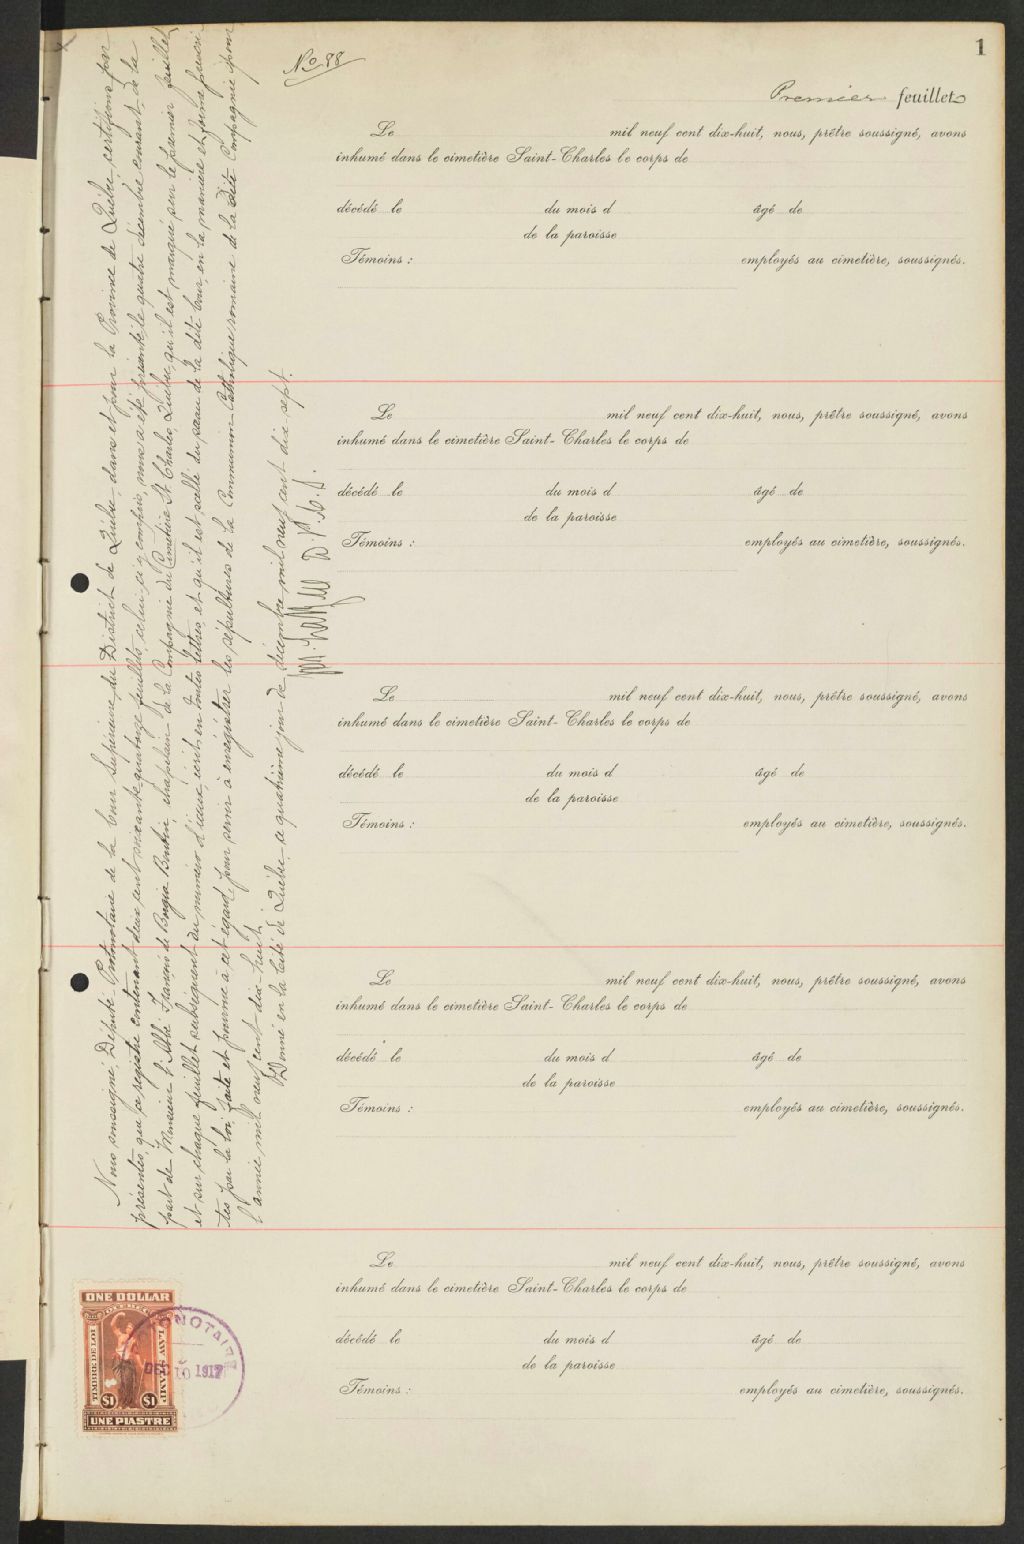 1
No 98
Premier feuillet
Nous soussigné, Député-Protonotaire de la Cour Supérieure, du District de Québec, dans et pour la Province de Québec, certifions par
présentes, que ce registre contenant deux cent soixante-quatorze feuillets, celui-ci y compris, nous a été présenté, le quatre décembre courant, de la
part de Monsieur l'Abbé François de Borgia Boutin, chapelain de la Compagnie du Cimetière St Charles, Québec, qu'il est marqué sur le premier feuillet
et sur chaque feuillet subséquent du numéro d'iceux, écrit en toutes lettres, et qu'il est scellé du sceau de la dite Cour, en la manière et forme prescri-
tes par la loi, faite et pourvue à cet égard, pour servir à enrégistrer les sépultures de la Communion Catholique romaine de la dite Compagnie pour
l'année mil neuf cent dix-huit.
Donné en la Cité de Québec, ce quatrième jour de décembre mil neuf cent dix-sept.
D. P. C. S.
Le mil neuf cent dix-huit, nous, prêtre soussigné, avons
inhumé dans le cimetière Saint-Charles le corps de
décédé le du mois d âgé de
de la paroisse
Témoins : employés au cimetière, soussignés.
Le mil neuf cent dix-huit, nous, prêtre soussigné, avons
inhumé dans le cimetière Saint-Charles le corps de
décédé le du mois d âgé de
de la paroisse
Témoins : employés au cimetière, soussignés.
Le mil neuf cent dix-huit, nous, prêtre soussigné, avons
inhumé dans le cimetière Saint-Charles le corps de
décédé le du mois d âgé de
de la paroisse
Témoins : employés au cimetière, soussignés.
Le mil neuf cent dix-huit, nous, prêtre soussigné, avons
inhumé dans le cimetière Saint-Charles le corps de
décédé le du mois d âgé de
de la paroisse
Témoins : employés au cimetière, soussignés.
Le mil neuf cent dix-huit, nous, prêtre soussigné, avons
inhumé dans le cimetière Saint-Charles le corps de
décédé le du mois d âgé de
de la paroisse
Témoins : employés au cimetière, soussignés.
ONE DOLLAR
QUEBEC
TIMBRE DE LOI
LAW STAMP
$1 $1
UNE PIASTRE
DEC 10 1917